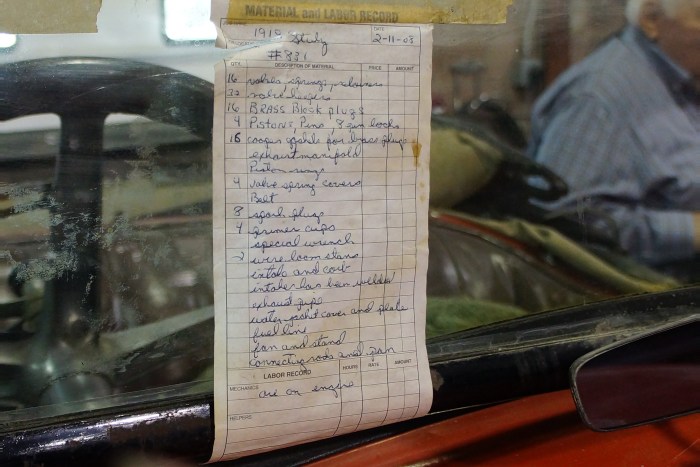 MATERIAL and LABOR RECORD
1918 Stutz
DATE
2-11-03
#831
QTY. DESCRIPTION OF MATERIAL PRICE AMOUNT
16 valves, springs, retainers
32 valve keepers
16 BRASS Block plugs
4 Pistons, Pins, 8 pin locks
16 cooper gaskets for brass plugs
exhaust manifold
Piston rings
4 valve spring covers
Belt
8 spark plugs
4 primer cups
special wrench
2 wire loom stans
intake and cost
intake has been welded
exhaust pipe
water jacket cover and plate
fuel line
fan and stand
connecting rods and pan
LABOR RECORD HOURS RATE AMOUNT
MECHANICS
are on engine
HELPERS